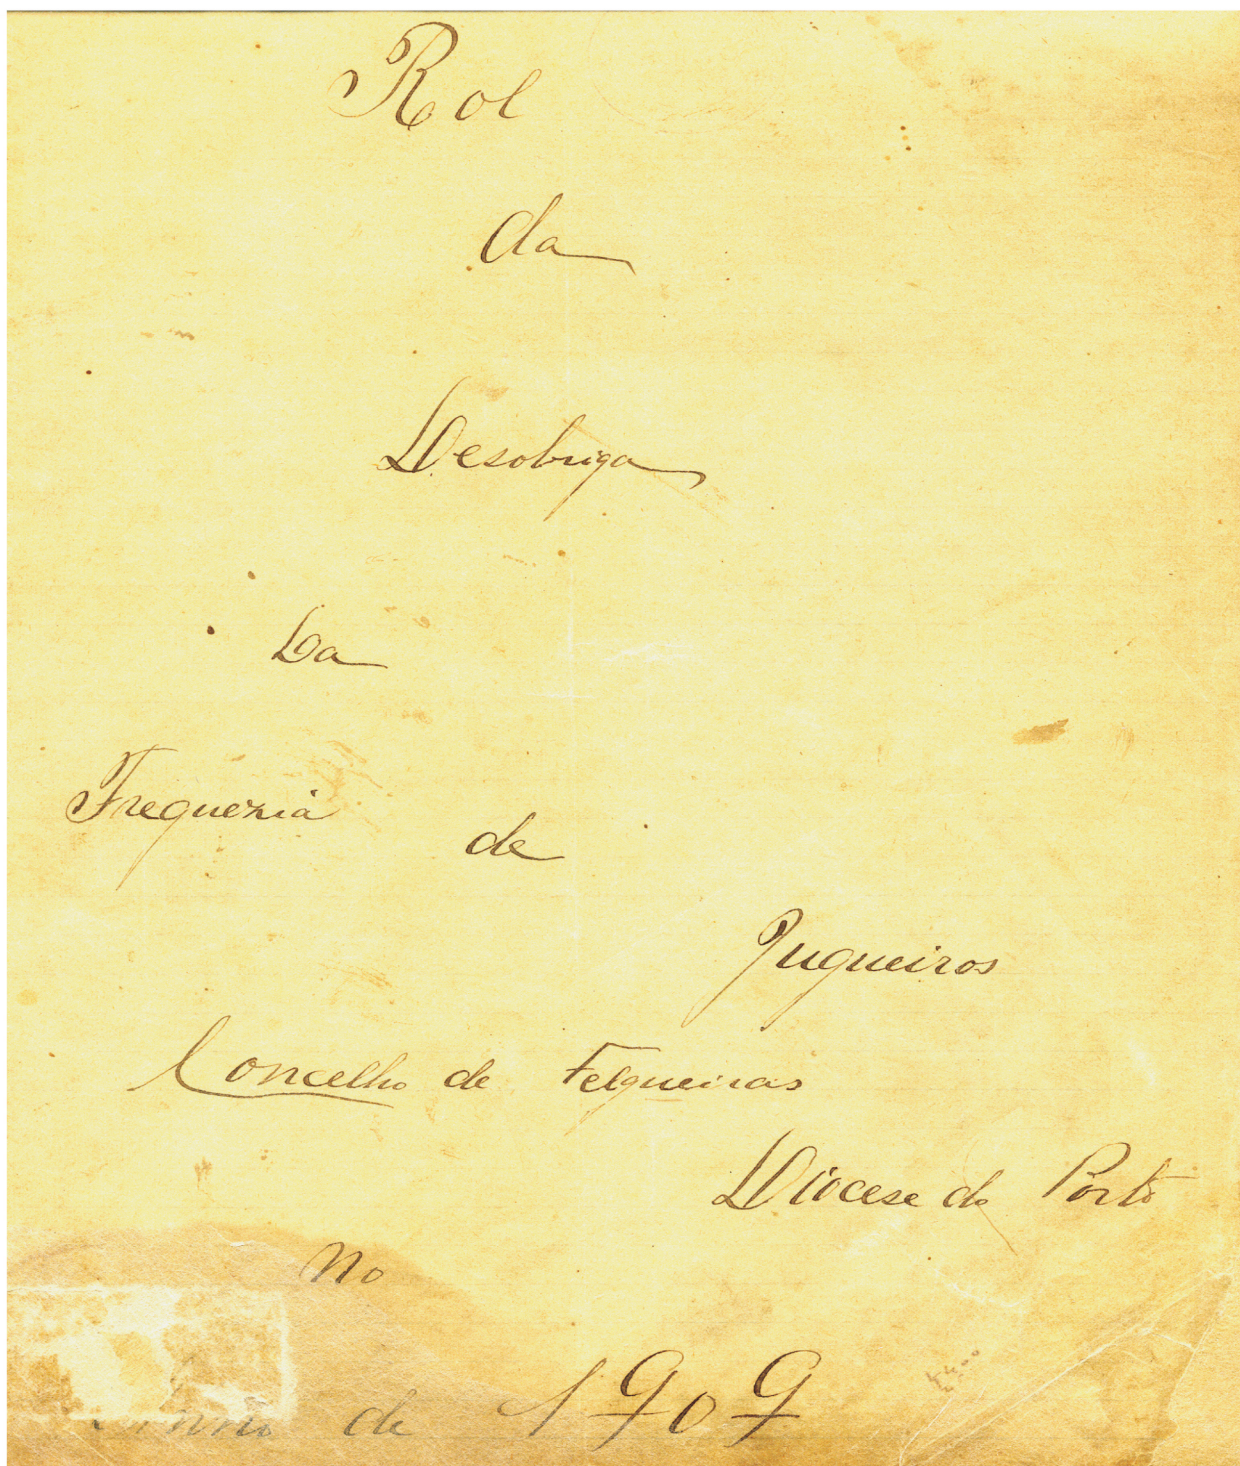 Rol
da
Desobriga
Da
Freguezia de
Jugueiros
Concelho de Felgueiras
Diocese do Porto
No
Anno de 1909